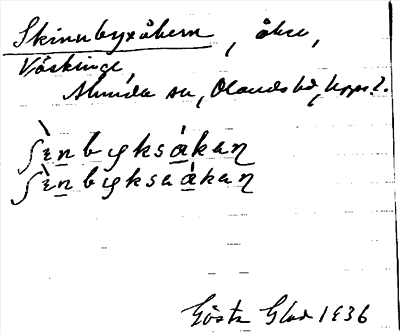 Skinnbyxåkern, åker,
Väskinge,
Almunda sn, Olands hd, Uppl.
ʃὲnbyksåkaɳ
ʃὲnbyksaåkaɳ
Gösta Glad 1936